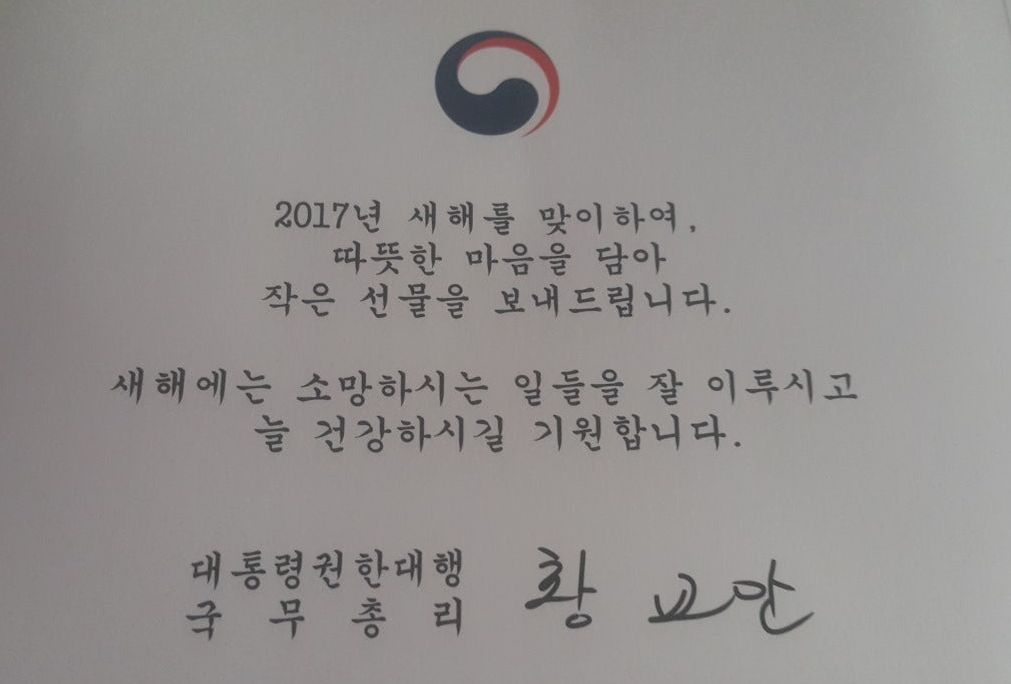 2017년 새해를 맞이하여,
따뜻한 마음을 담아
작은 선물을 보내드립니다.
새해에는 소망하시는 일들을 잘 이루시고
늘 건강하시길 기원합니다.
대통령권한대행
국무총리 황교안